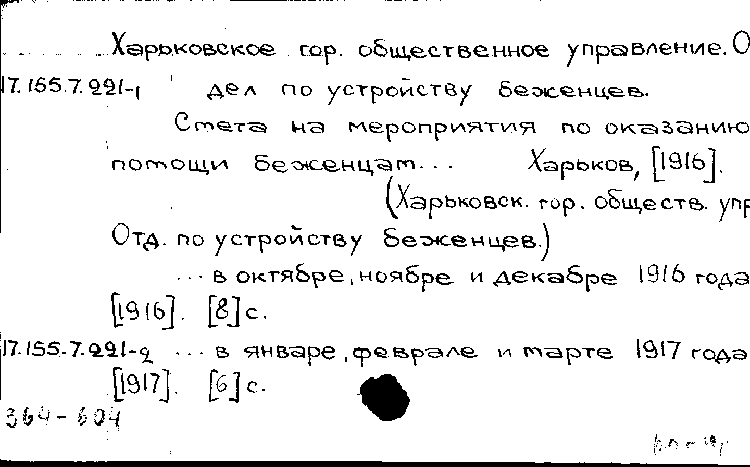 Харьковское гор. общественное управление. О
17.155.7.221-1 дел по устройству беженцев.
Смета на мероприятия по оказанию
помощи беженцам... Харьков, [1916].
(Харьковск. гор. обществ. упр
Отд. по устройству беженцев.)
... в октябре, ноябре и декабре 1916 года
[1916]. [8] с.
17.155.7.221-2 ... в январе, феврале и марте 1917 года
[1917]. [6] с.
364-604